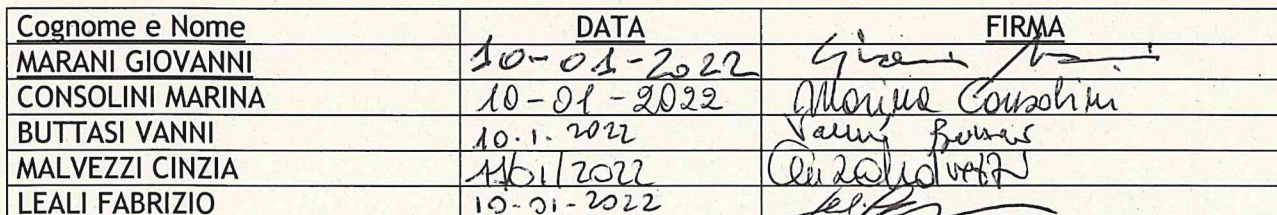 Cognome e Nome DATA FIRMA
MARANI GIOVANNI 10-01-2022
CONSOLINI MARINA 10-01-2022 Marina Consolini
BUTTASI VANNI 10.1.2022 Vanni
MALVEZZI CINZIA 11/01/2022
LEALI FABRIZIO 10-01-2022